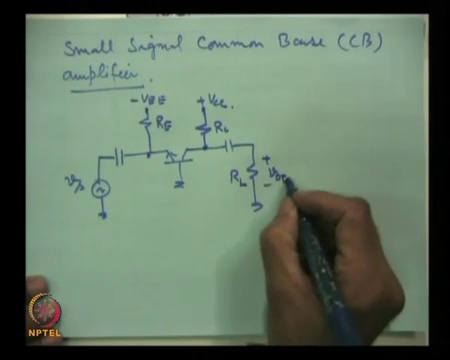 Small Signal Common Base (CB)
amplifier.
- VEE
+ VCC
RE
RC
vs
RL
+
vo
-
NPTEL